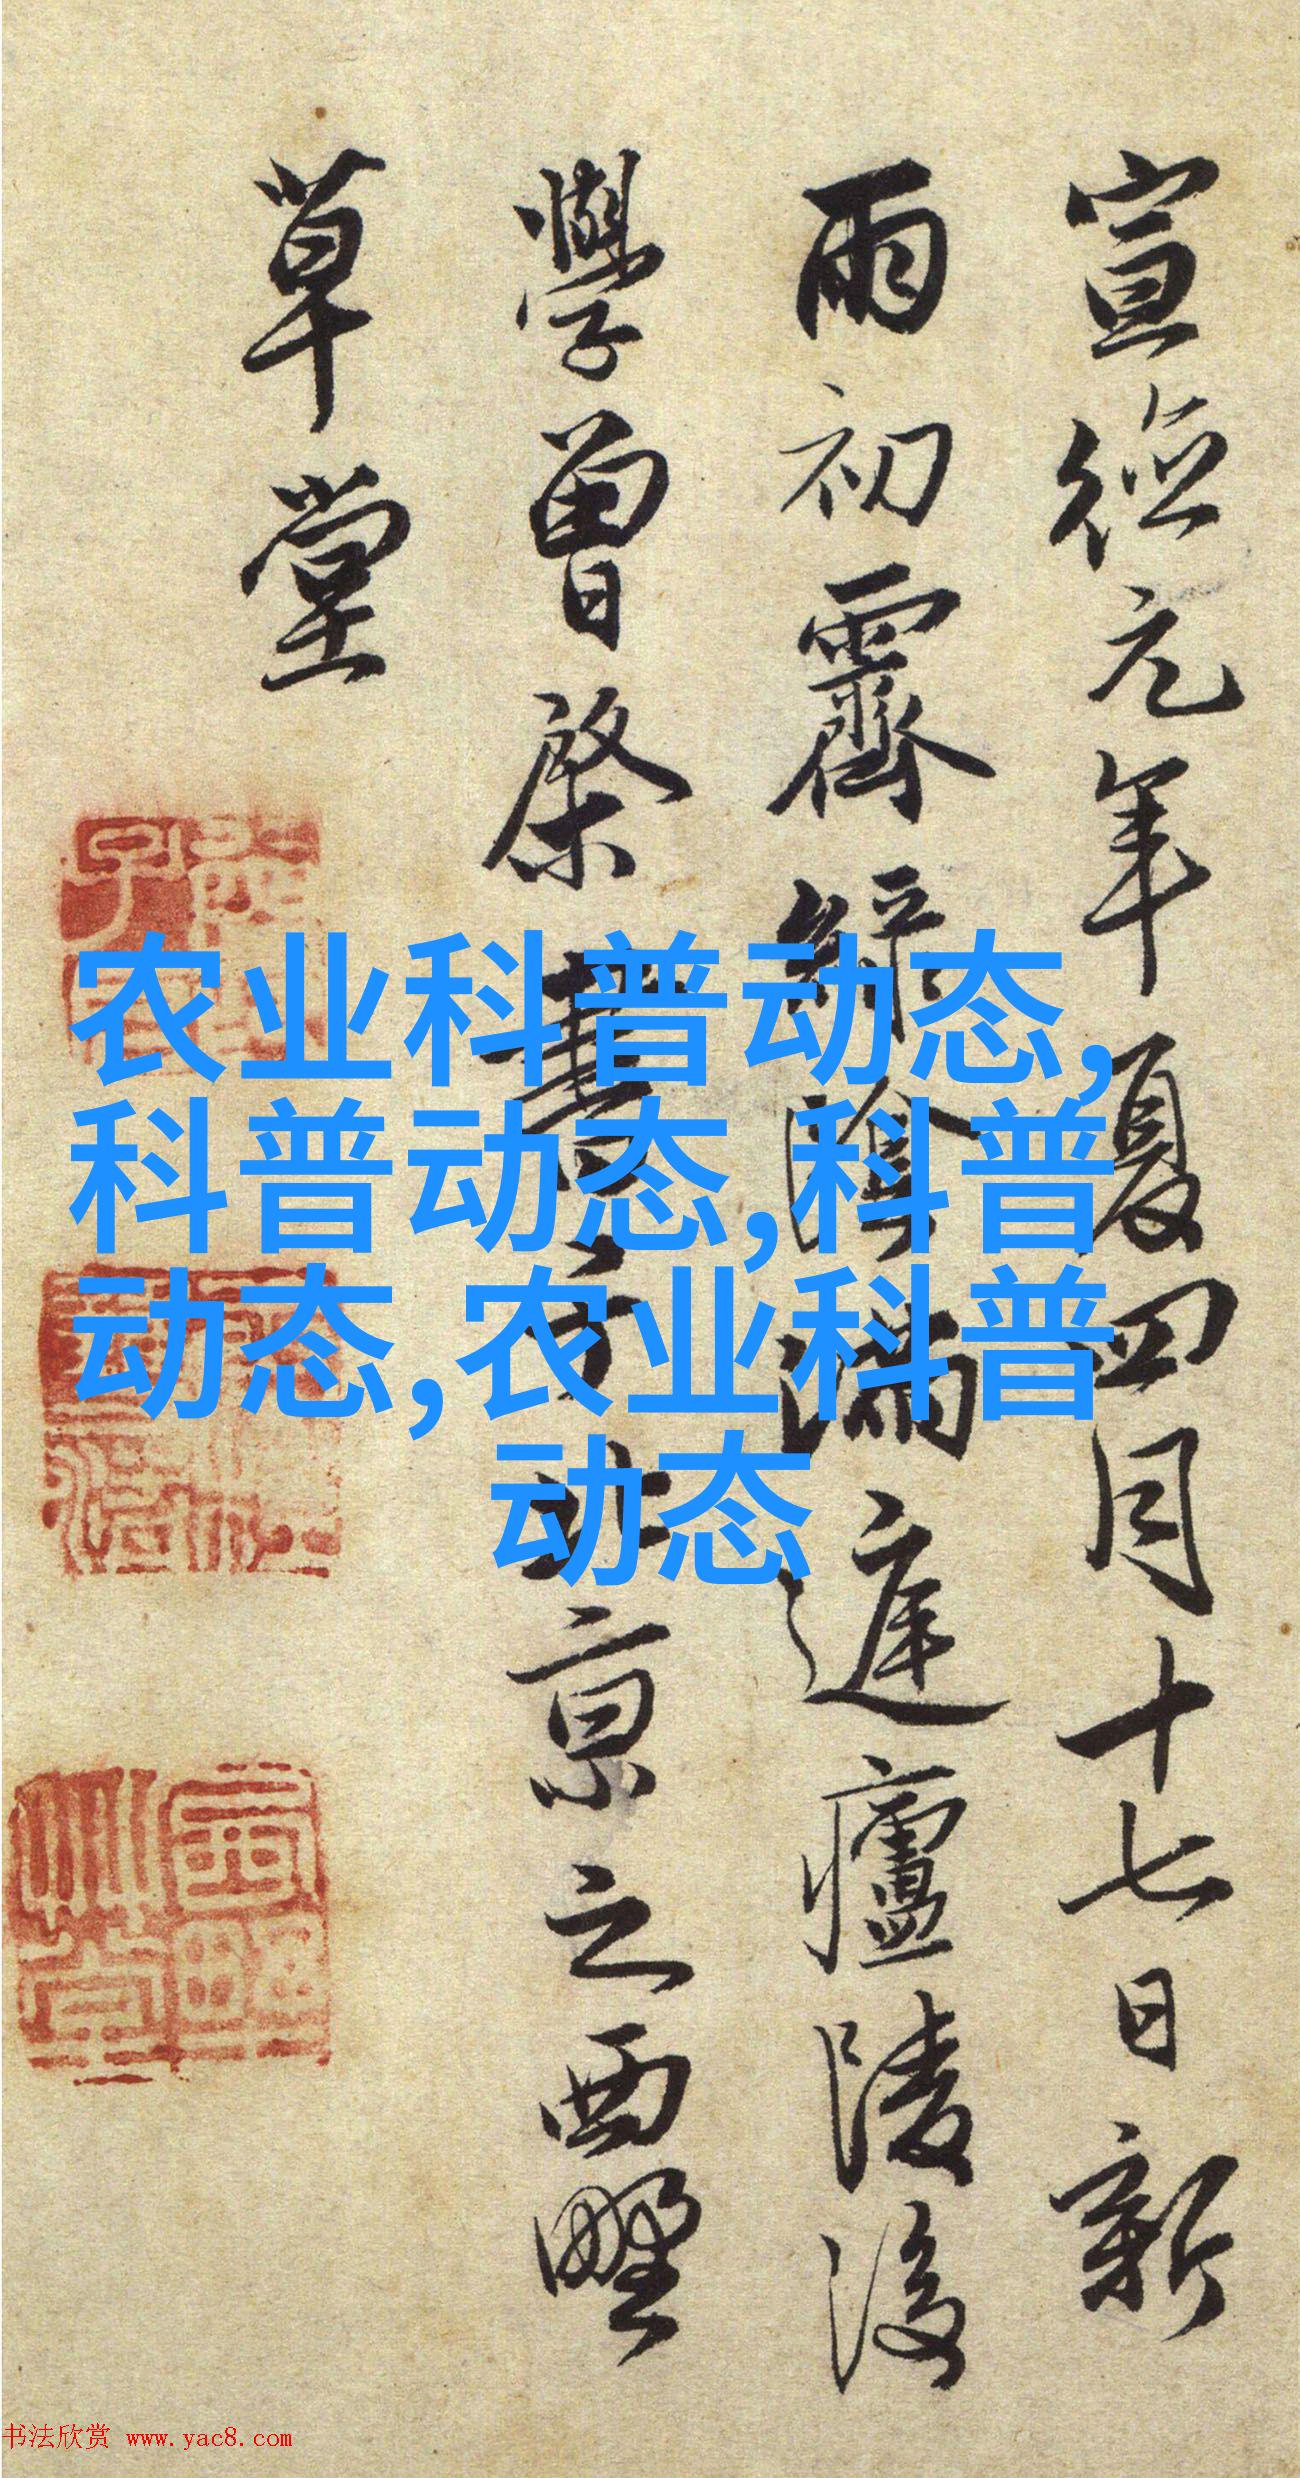 宣德元年夏四月十七日新
雨初霽解陰滿遲廬陵後
學曾棨書于北京之西墅
草堂
农业科普动态,
科普动态,科普
动态,农业科普
动态
书法欣赏 www.yac8.com